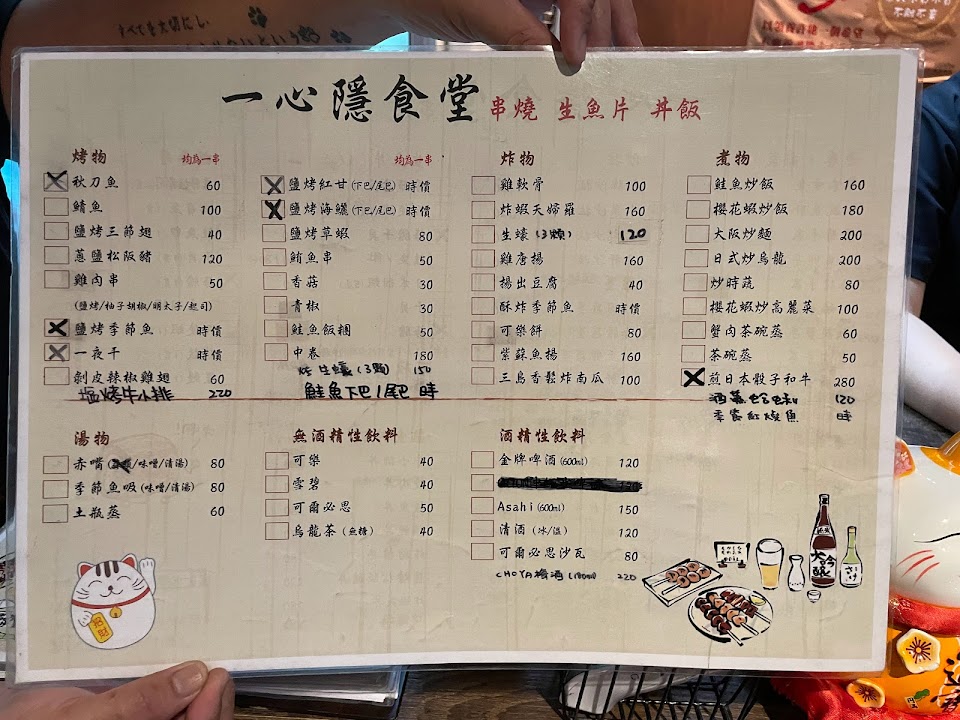 すべてを大切にし
一心隱食堂 串燒 生魚片 丼飯
烤物 均為一串
秋刀魚 60
鯖魚 100
鹽烤三節翅 40
蔥鹽松阪豬 120
雞肉串 50
(鹽烤/柚子胡椒/明太子/起司)
鹽烤季節魚 時價
一夜干 時價
剝皮辣椒雞翅 60
塩烤牛小排 220
均為一串
鹽烤紅甘(下巴/尾巴) 時價
鹽烤海鱺(下巴/尾巴) 時價
鹽烤草蝦 80
鮪魚串 50
香菇 30
青椒 30
鮭魚飯糰 50
中卷 180
炸生蠔(3顆) 150
鮭魚下巴/尾巴 時
炸物
雞軟骨 100
炸蝦天婦羅 160
生蠔(3顆) 120
雞唐揚 160
揚出豆腐 40
酥炸季節魚 時價
可樂餅 80
紫蘇魚揚 160
三島香鬆炸南瓜 100
煮物
鮭魚炒飯 160
櫻花蝦炒飯 180
大阪炒麵 200
日式炒烏龍 200
炒時蔬 80
櫻花蝦炒高麗菜 100
蟹肉茶碗蒸 60
茶碗蒸 50
煎日本骰子和牛 280
酒蒸蛤蜊 120
季節紅燒魚 時
湯物
赤嘴(/味噌/清湯) 80
季節魚吸(味噌/清湯) 80
土瓶蒸 60
無酒精性飲料
可樂 40
雪碧 40
可爾必思 50
烏龍茶(無糖) 40
酒精性飲料
金牌啤酒(600ml) 120
Asahi(600ml) 150
清酒(冰/溫) 120
可爾必思沙瓦 80
CHOYA梅酒 220
大吟釀
招財